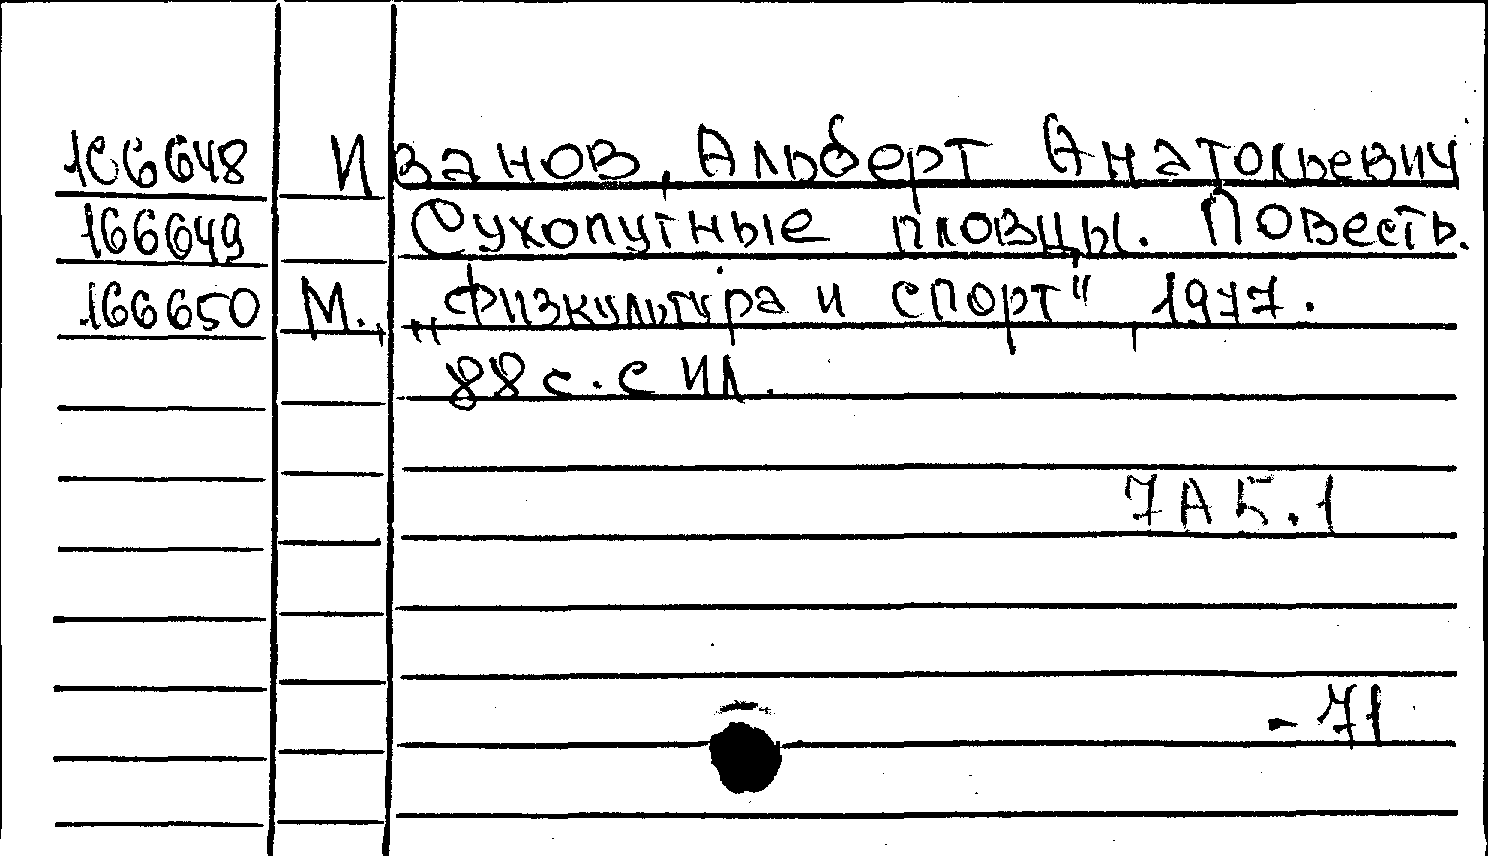 166648 Иванов, Альберт Анатольевич
166649 Сухопутные пловцы. Повесть.
166650 М., „Физкультура и спорт", 1977.
88 с. с ил.
7А5.1
- 71